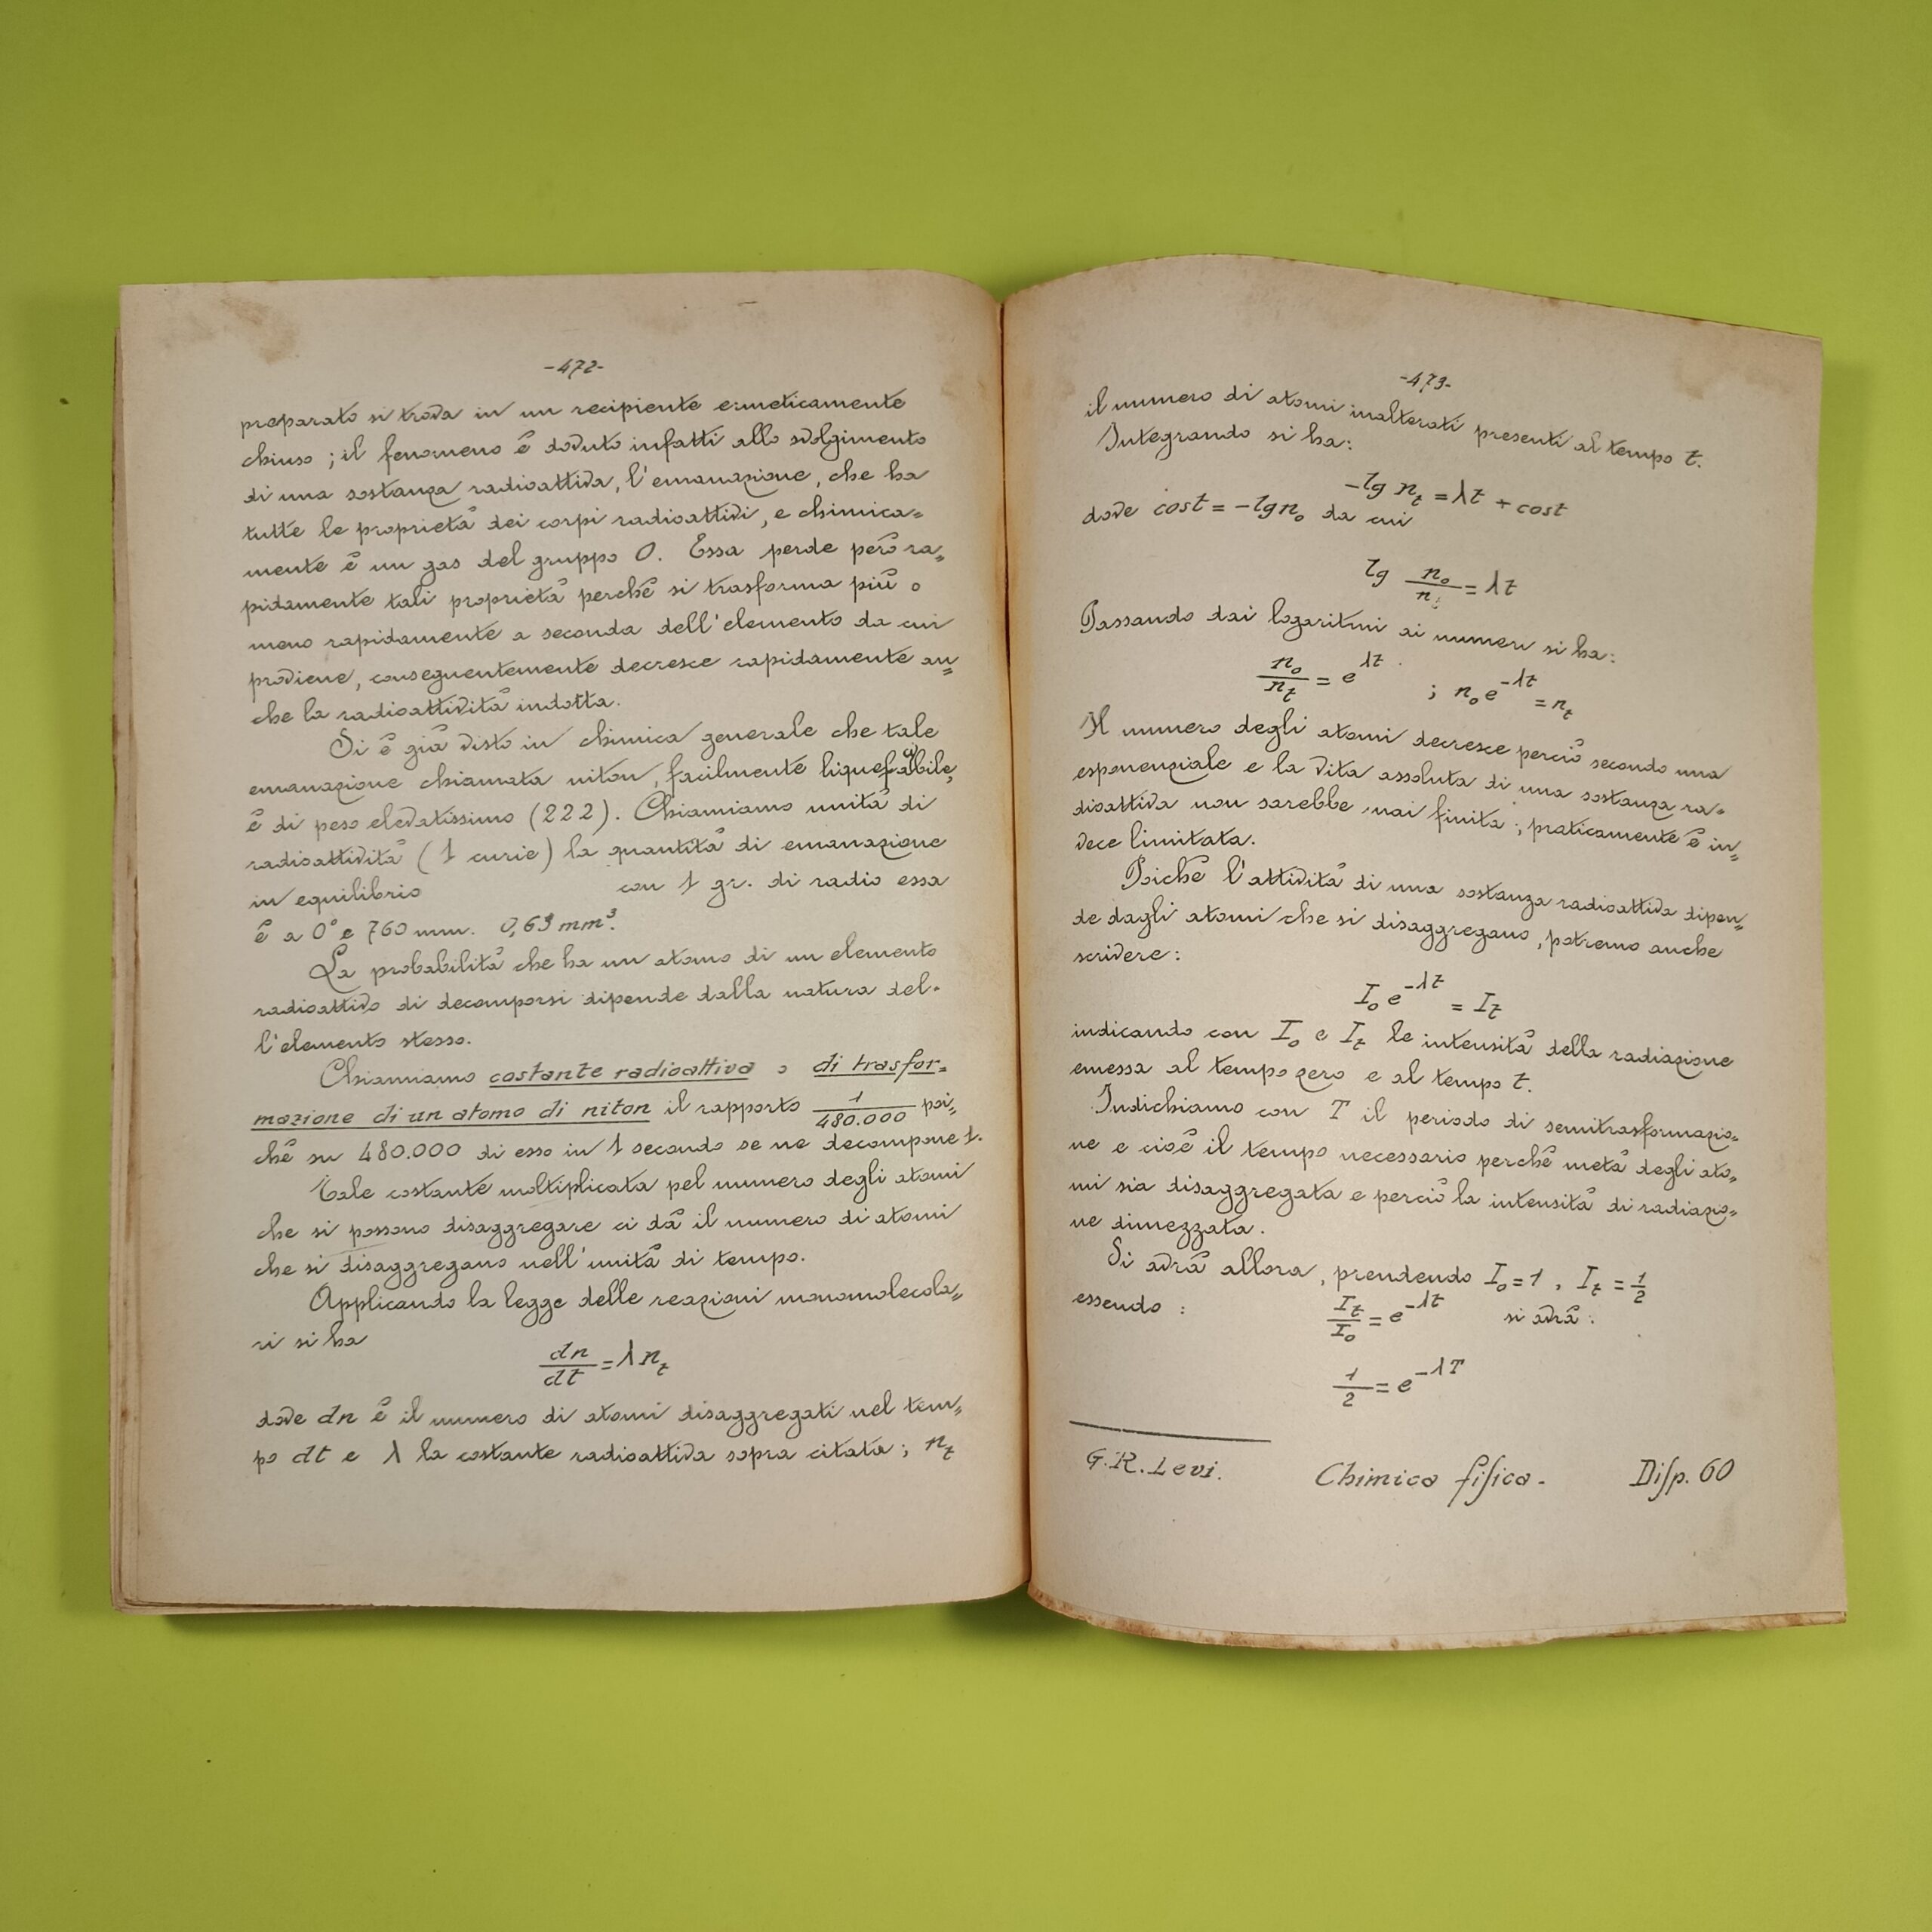 -472-
preparato si trova in un recipiente ermeticamente
chiuso; il fenomeno è dovuto infatti allo svolgimento
di una sostanza radioattiva, l'emanazione, che ha
tutte le proprietà dei corpi radioattivi, e chimica=
mente è un gas del gruppo O. Essa perde però ra=
pidamente tali proprietà perchè si trasforma più o
meno rapidamente a seconda dell'elemento da cui
proviene, conseguentemente decresce rapidamente an=
che la radioattività indotta.
Si è già visto in chimica generale che tale
emanazione chiamata niton, facilmente liquefabile,
è di peso elevatissimo (222). Chiamiamo unità di
radioattività (1 curie) la quantità di emanazione
in equilibrio con 1 gr. di radio essa
è a 0° e 760 mm. 0,63 mm³.
La probabilità che ha un atomo di un elemento
radioattivo di decomporsi dipende dalla natura del-
l'elemento stesso.
Chiamiamo costante radioattiva o di trasfor=
mazione di un atomo di niton il rapporto 1/480.000 poi=
chè su 480.000 di esso in 1 secondo se ne decompone 1.
Tale costante moltiplicata pel numero degli atomi
che si possono disaggregare ci dà il numero di atomi
che si disaggregano nell'unità di tempo.
Applicando la legge delle reazioni monomolecola=
ri si ha
dn/dt = λ nₜ
dove dn è il numero di atomi disaggregati nel tem=
po dt e λ la costante radioattiva sopra citata; nₜ
-473-
il numero di atomi inalterati presenti al tempo t.
Integrando si ha:
-lg nₜ = λt + cost
dove cost = -lg n₀ da cui
lg n₀/nₜ = λt
Passando dai logaritmi ai numeri si ha:
n₀/nₜ = e^λt ; n₀e^-λt = nₜ
Il numero degli atomi decresce perciò secondo una
esponenziale e la vita assoluta di una sostanza ra=
dioattiva non sarebbe mai finita; praticamente è in=
vece limitata.
Poichè l'attività di una sostanza radioattiva dipen=
de dagli atomi che si disaggregano, potremo anche
scrivere:
I₀ e^-λt = Iₜ
indicando con I₀ e Iₜ le intensità della radiazione
emessa al tempo zero e al tempo t.
Indichiamo con T il periodo di semitrasformazio=
ne e cioè il tempo necessario perchè metà degli ato=
mi sia disaggregata e perciò la intensità di radiazio=
ne dimezzata.
Si avrà allora, prendendo I₀ = 1, Iₜ = 1/2
essendo: Iₜ/I₀ = e^-λt si avrà:
1/2 = e^-λT
G. R. Levi. Chimica fisica - Disp. 60